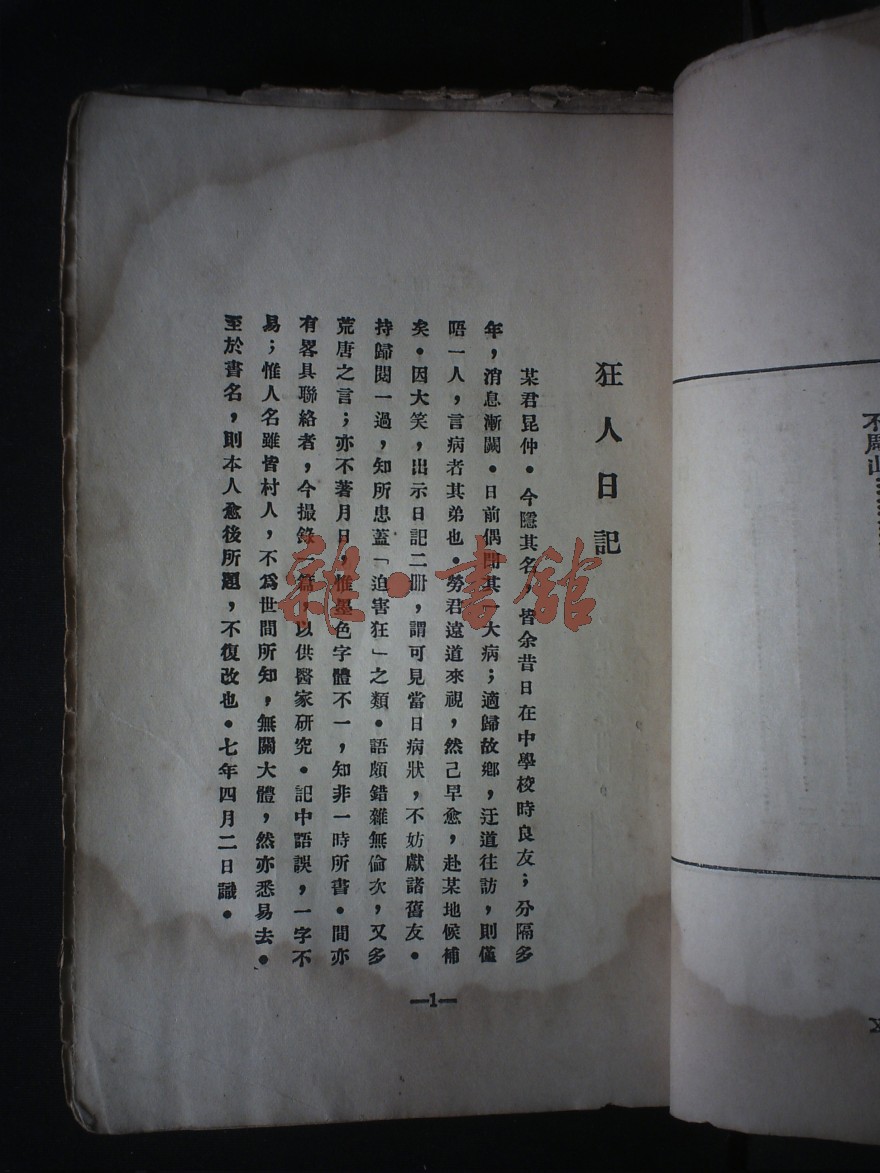 不周山
狂人日記
某君昆仲・今隱其名,皆余昔日在中學校時良友;分隔多
年,消息漸闕・日前偶聞其一大病;適歸故鄉,迂道往訪,則僅
晤一人,言病者其弟也・勞君遠道來視,然己早愈,赴某地候補
矣・因大笑,出示日記二冊,謂可見當日病狀,不妨獻諸舊友・
持歸閱一過,知所患蓋「迫害狂」之類・語頗錯雜無倫次,又多
荒唐之言;亦不著月日,惟墨色字體不一,知非一時所書・間亦
有畧具聯絡者,今撮錄一篇,以供醫家研究・記中語誤,一字不
易;惟人名雖皆村人,不爲世間所知,無關大體,然亦悉易去・
至於書名,則本人愈後所題,不復改也・七年四月二日識・
—1—
雜・書館